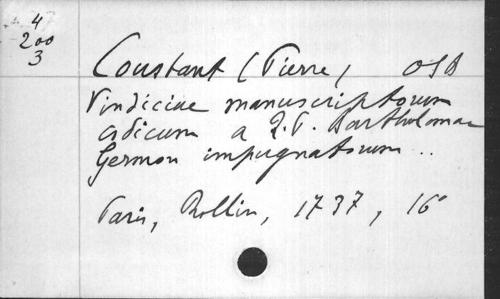 4
200
3
Coustant (Pierre) OSB
Vindiciae manuscriptorum
codicum a R.P. Bartholomae
Germon impugnatorum ..
Paris, Rollin, 1737, 16°